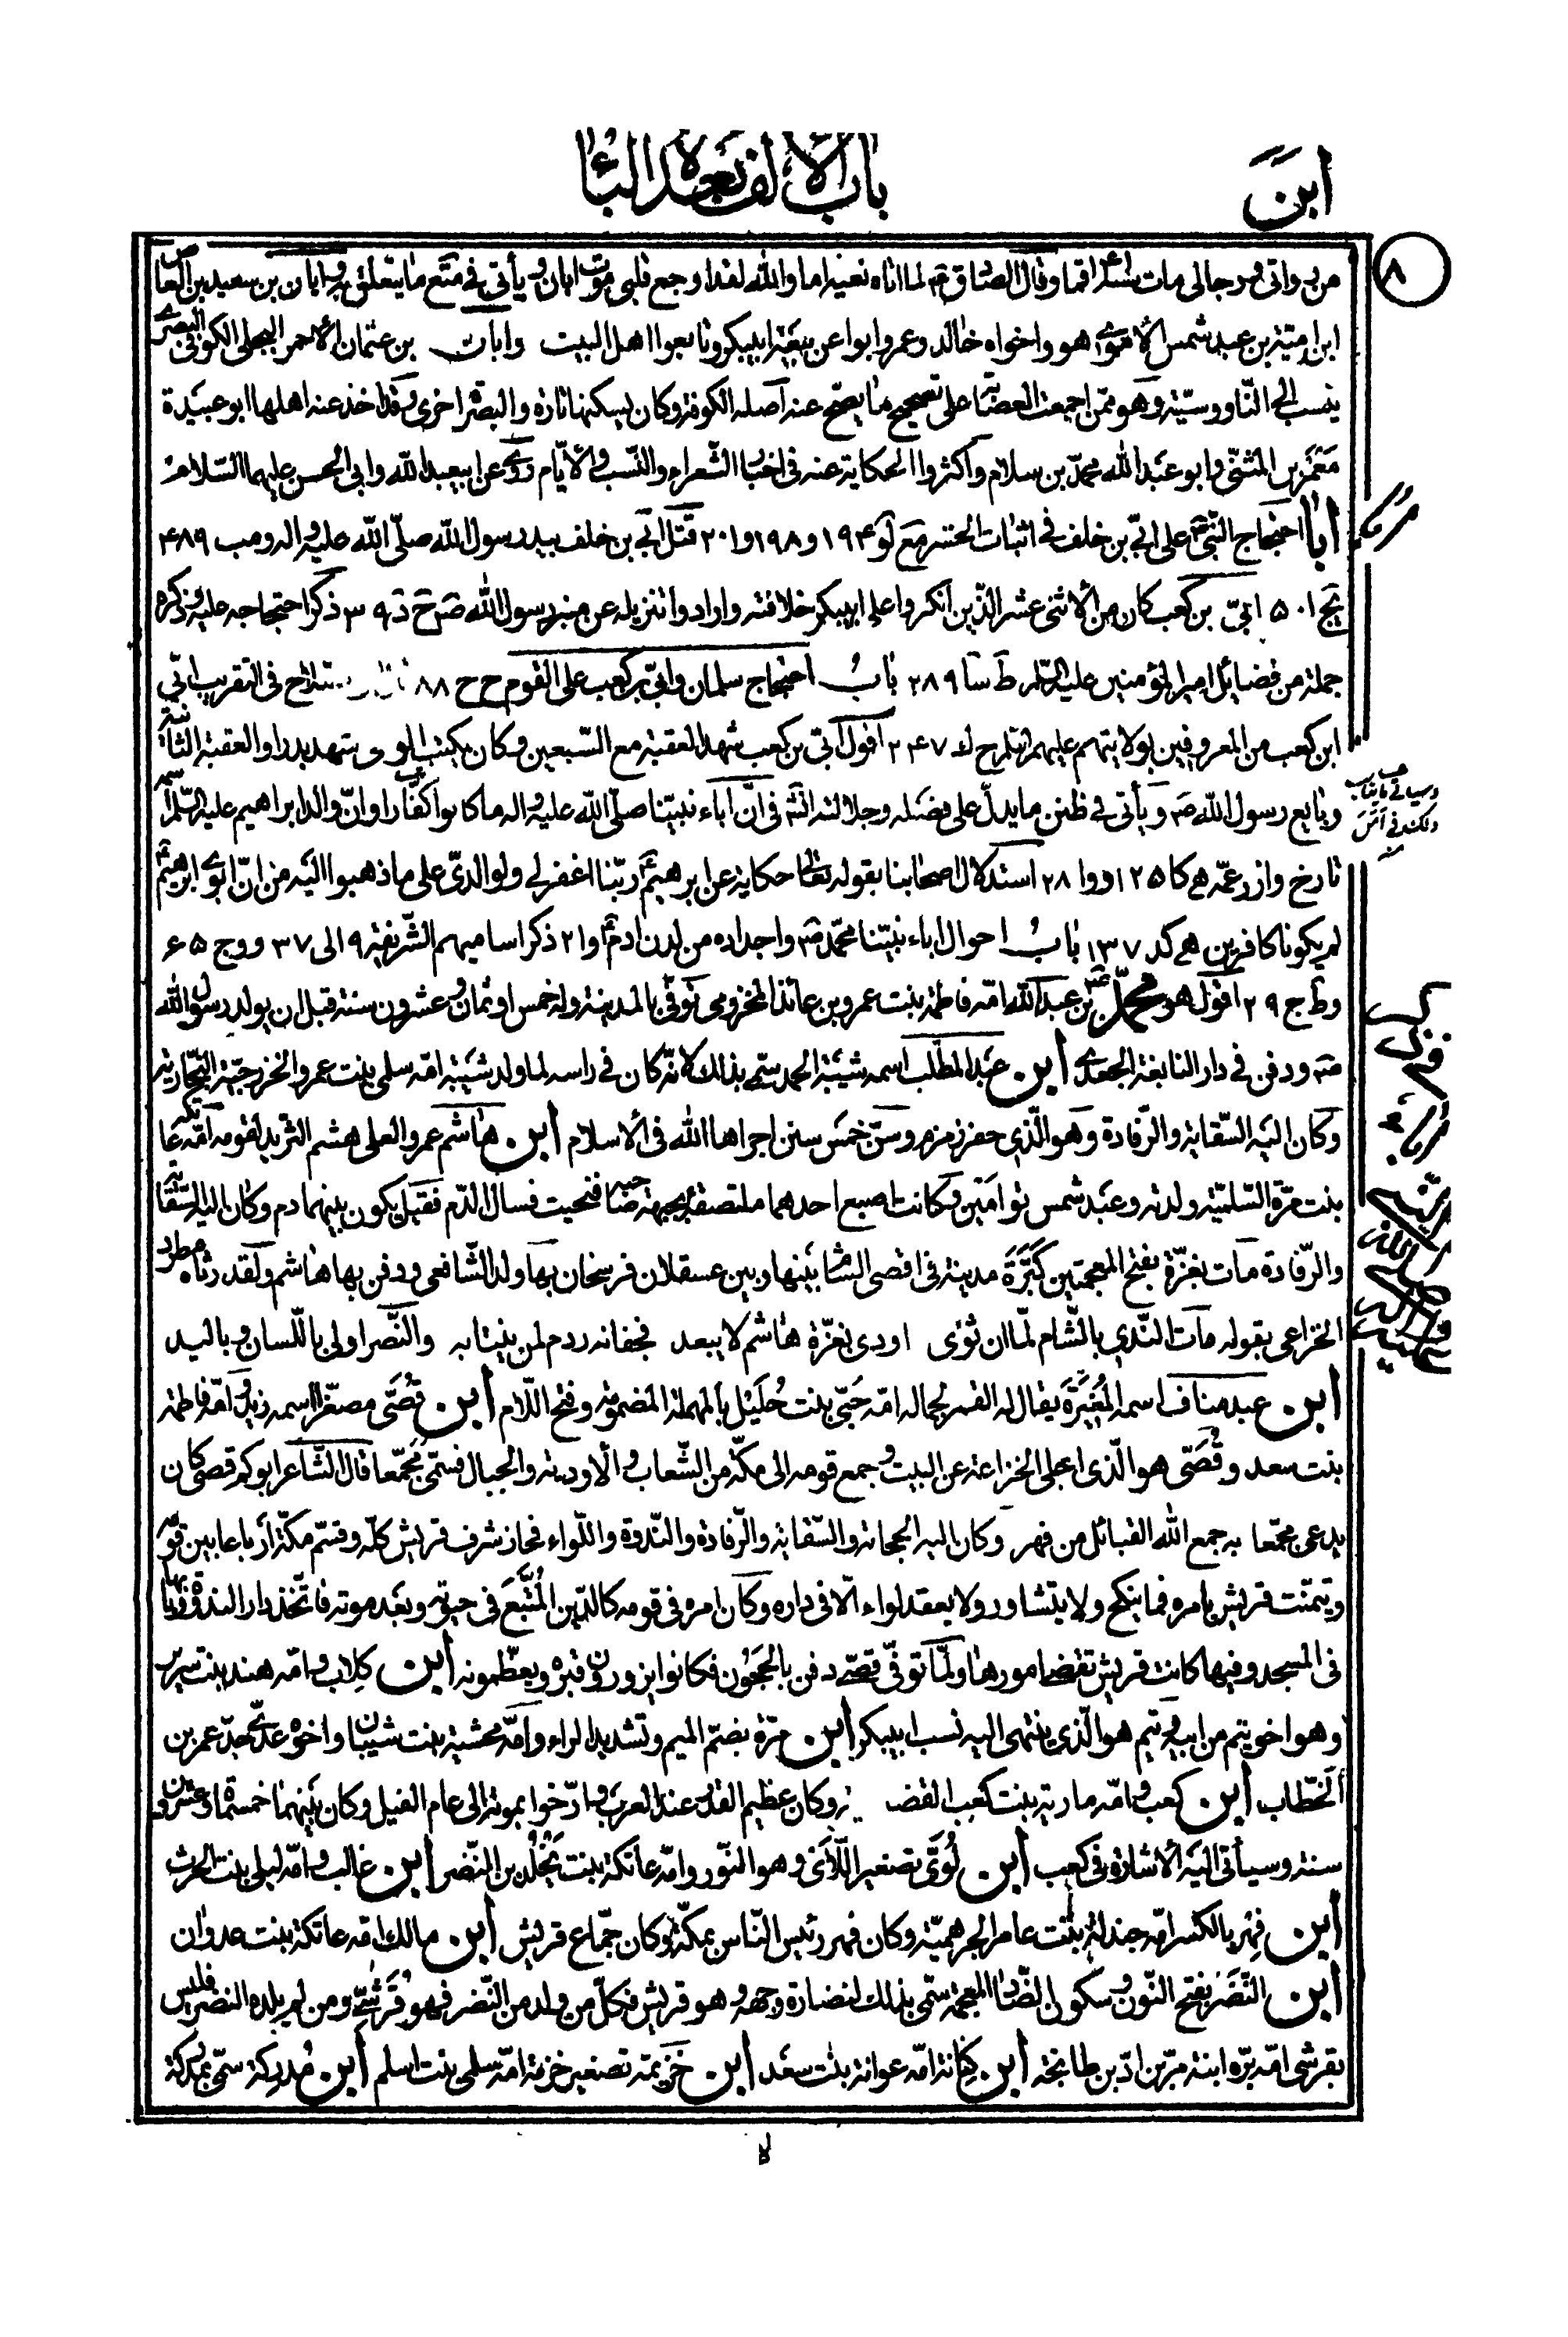 ابن
باب الالف بعده الباء
٨
من رواتي ورجالي مات وقال الصادق لما اتاه نعيه اما والله لقد اوجع قلبي موت ابان ويأتي في متع ما يتعلق به وابان بن سعيد بن العاص
ابن امية بن عبد شمس الأموي هو واخواه خالد وعمرو ابوا عن بيعة ابيبكر وتابعوا اهل البيت وابان بن عثمان الأحمر البجلي الكوفي البصري
ينسب الى الناووسية وهو ممن اجمعت العصابة على تصحيح ما يصح عنه اصله الكوفة وكان يسكنها تارة والبصرة اخرى وقد اخذ عنه اهلها ابو عبيدة
معمر بن المثنى وابو عبد الله محمد بن سلام واكثروا الحكاية عنه في اخبار الشعراء والنسب والأيام روى عن ابيعبد الله وابي الحسن عليهما السلام
أبا احتجاج النبي على ابي بن خلف في اثبات الحشر مع لو ١٩٤ و ١٩٨ و ٢٠١ قتل ابي بن خلف بيد رسول الله صلى الله عليه واله و مب ٤٨٩
يج ٥٠١ ابي بن كعب كان من الأثنى عشر الذين انكروا على ابيبكر خلافته وارادوا تنزيله عن منبر رسول الله ص ح د ٣٩ ذكر احتجاجه عليه وذكره
جملة من فضائل امير المؤمنين عليه السلام ط سا ٢٨٩ باب احتجاج سلمان وابي بن كعب على القوم ح ح ٨٨ في التقريب ابي
ابن كعب من المعروفين بولايتهم عليهم السلام ح لد ٢٤٧ اقول ابي بن كعب شهد العقبة مع السبعين وكان يكتب الوحي شهد بدرا والعقبة الثانية
وبايع رسول الله ص ويأتي في ظنن ما يدل على فضله وجلالته في ان اباء نبينا صلى الله عليه واله ما كانوا كفارا وان والد ابراهيم عليه السلام اسمه
تارخ وازر عمه ه كا ١٢٥ و وا ٢٨ استدلال اصحابنا بقوله تعالى حكاية عن ابرهيم ربنا اغفر لي ولوالدي على ما ذهبوا اليه من ان ابوي ابرهيم
لم يكونا كافرين ه كد ١٣٧ باب احوال اباء نبينا محمد ص واجداده من لدن ادم و ا ٢ ذكر اساميهم الشريفة ٩ الى ٣٧ و وج ٦٥
وط ج ٢٩ اقول هو محمد بن عبد الله امه فاطمة بنت عمرو بن عائذ المخزومي توفي بالمدينة وله خمس او ثمان وعشرون سنة قبل ان يولد رسول الله
ص ودفن في دار النابغة الجعدي ابن عبد المطلب اسمه شيبة الحمد سمي بذلك لانه كان في راسه لما ولد شيبة امه سلمى بنت عمرو الخزرجية النجارية
وكان اليه السقاية والرفادة وهو الذي حفر زمزم وسن خمس سنن اجراها الله في الاسلام ابن هاشم عمرو العلى هشم الثريد لقومه امه عاتكة
بنت مرة السلمية ولدته وعبد شمس توامين وكانت اصبع احدهما ملتصقة بجبهة صاحبه فنحيت فسال الدم فقيل يكون بينهما دم وكان اليه السقاية
والرفادة مات بغزة بفتح المعجمتين كبزة مدينة في اقصى الشام بينها وبين عسقلان فرسخان بها ولد الشافعي ودفن بها هاشم ولقد رثاه مطرود
الخزاعي بقوله مات الندى بالشام لما ان ثوى اودى بغزة هاشم لا يبعد فجفانه ردم لمن ينتابه والنصر اولى باللسان وباليد
ابن عبد مناف اسمه المغيرة يقال له القمر لجماله امه حبى بنت حليل بالمهملة المضمومة وفتح اللام ابن قصي مصغرا اسمه زيد وامه فاطمة
بنت سعد وقصي هو الذي اجلى الخزاعة عن البيت وجمع قومه الى مكة من الشعاب والأودية والجبال فسمي مجمعا قال الشاعر ابوكم قصي كان
يدعى مجمعا به جمع الله القبائل من فهر وكان اليه الحجابة والسقاية والرفادة والندوة واللواء فحاز شرف قريش كله وقسم مكة ارباعا بين قومه
وتيمنت قريش بامره فما ينكح ولا يتشاور ولا يعقد لواء الا في داره وكان امره في قومه كالدين المتبع في حيوته وبعد موته فاتخذ دار الندوة وبابها
في المسجد وفيها كانت قريش تقضي امورها ولما توفي قصي دفن بالحجون فكانوا يزورون قبره ويعظمونه ابن كلاب وامه هند بنت سرير
وهو اخو تيم من ابيه وتيم هو الذي ينتهى اليه نسب ابيبكر ابن مرة بضم الميم وتشديد الراء وامه محشية بنت شيبان واخوه عدي جد عمر بن
الخطاب ابن كعب وامه مارية بنت كعب القضـ ية وكان عظيم القدر عند العرب وارخوا بموته الى عام الفيل وكان بينهما خمسمائة وعشرون
سنة وسيأتي اليه الأشارة في كعب ابن لوي تصغير اللأى وهو الثور وامه عاتكة بنت يخلد بن النضر ابن غالب وامه ليلى بنت الحرث
ابن فهر بالكسر امه جندلة بنت عامر الجرهمية وكان فهر رئيس الناس بمكة وكان جماع قريش ابن مالك امه عاتكة بنت عدوان
ابن النضر بفتح النون وسكون الضاد المعجمة سمي بذلك لنضارة وجهه وهو قريش فكل من ولد من النضر فهو قرشي ومن لم يلده النضر فليس
بقرشي امه برة ابنة مر بن اد بن طابخة ابن كنانة امه عوانة بنت سعد ابن خزيمة تصغير خزمة امه سلمى بنت اسلم ابن مدركة سمي بمدركة
لا